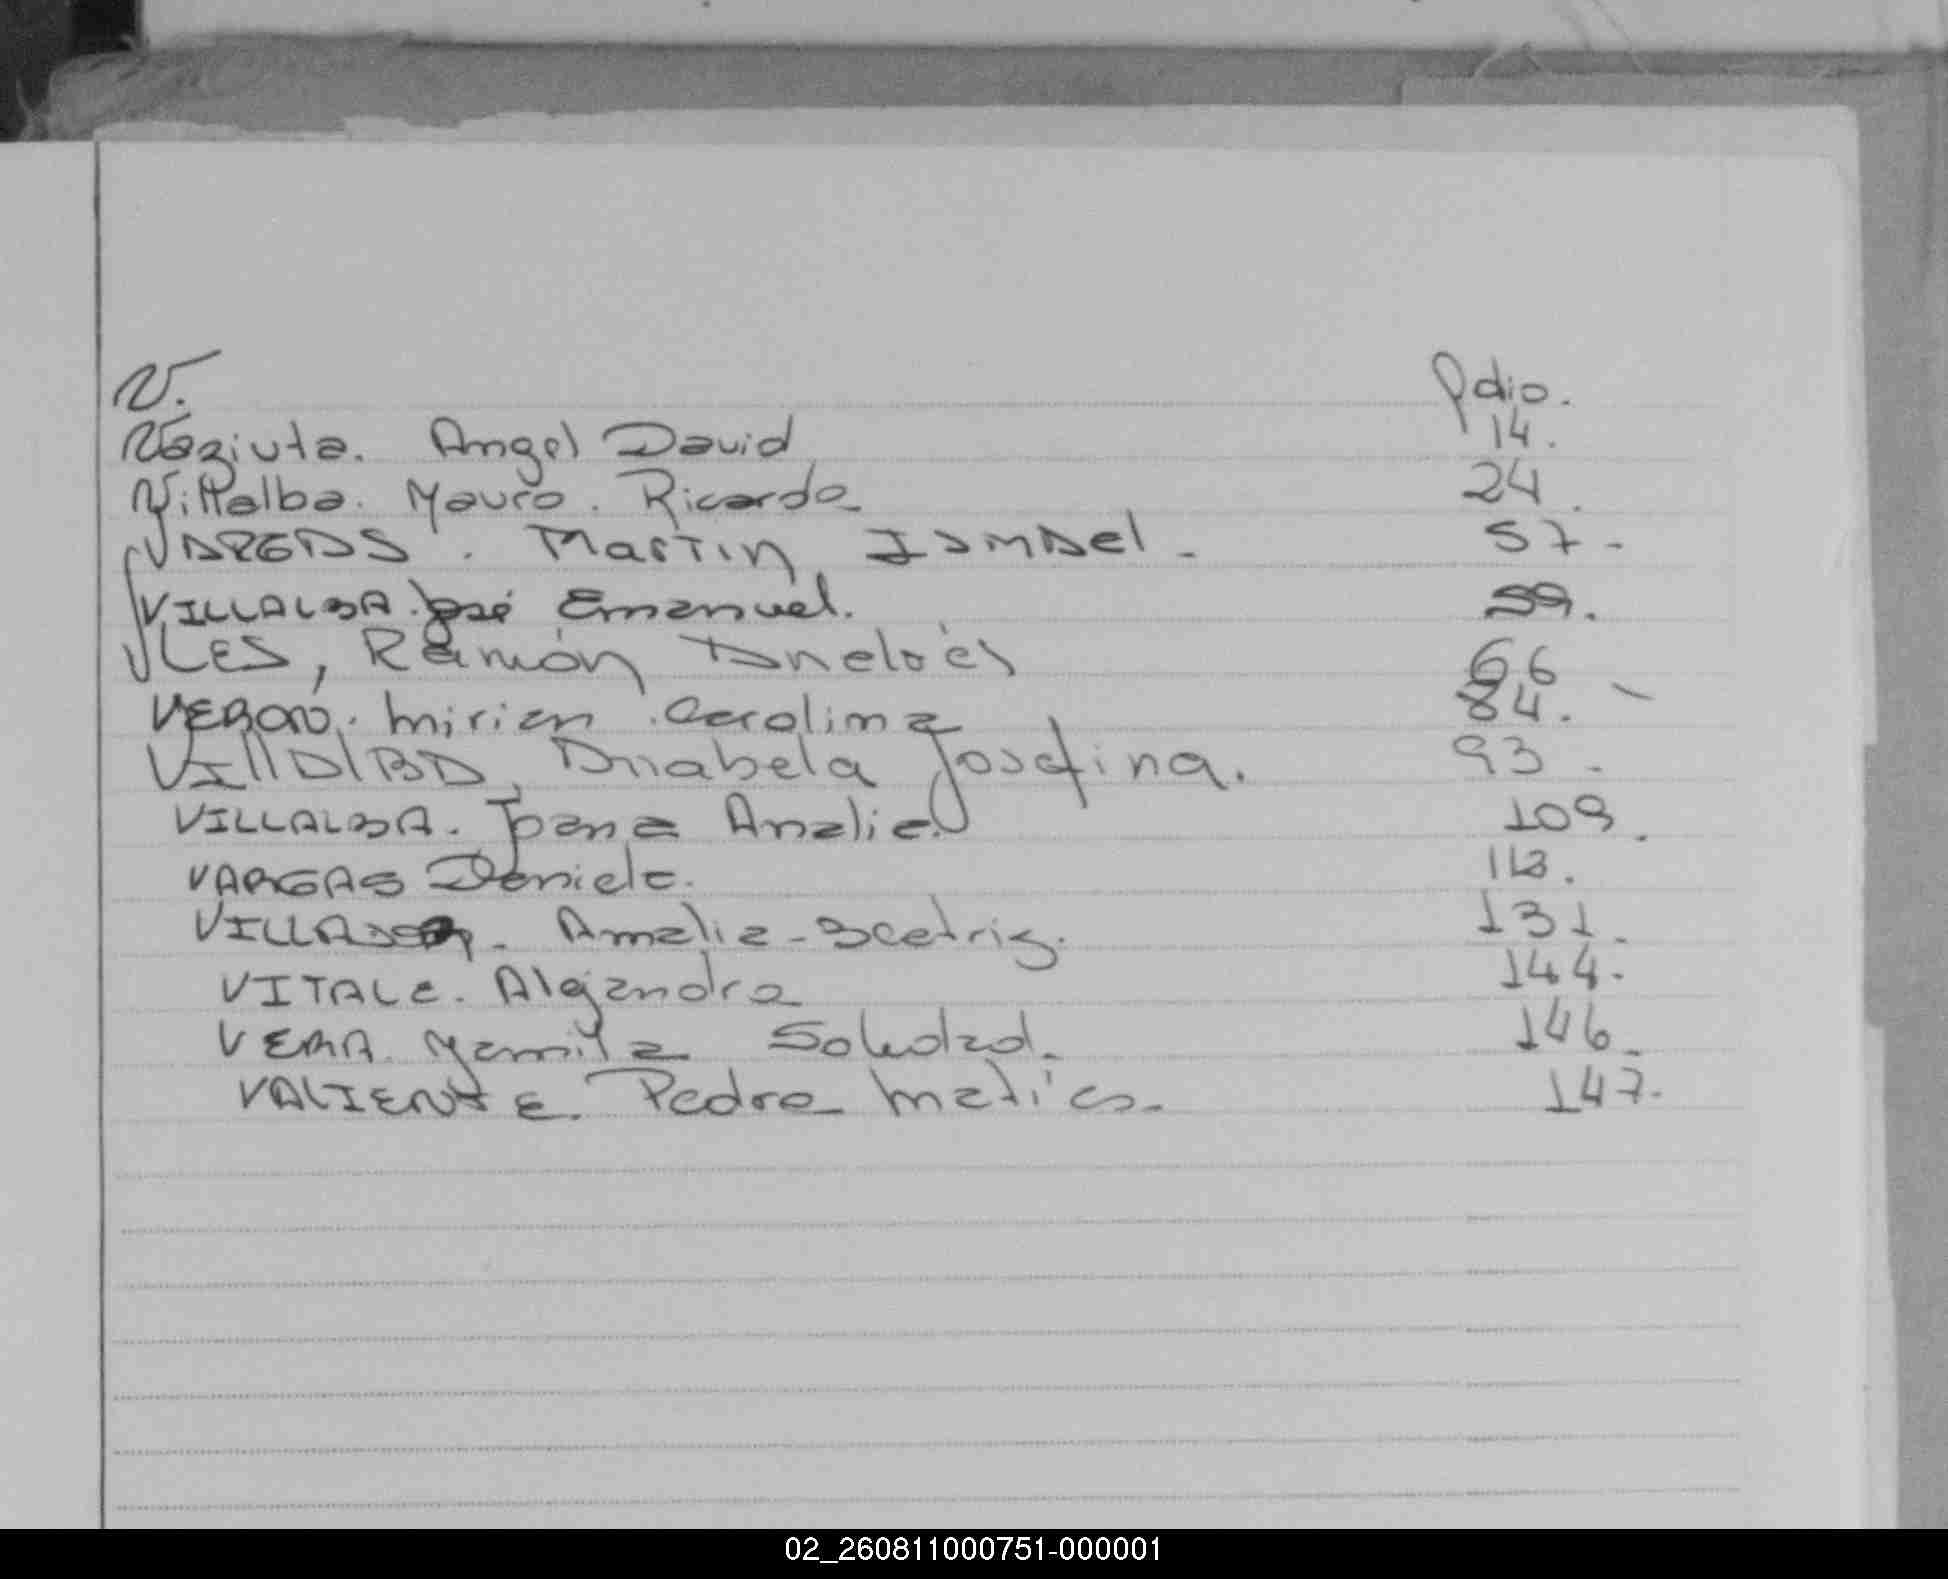 V. Folio.
Vaziuta. Angel David 14.
Villalba. Mauro. Ricardo 24.
VARGAS. Martin Ismael. 57.
VILLALBA. José Emanuel. 59.
VLES, Ramón 66
VERON. Mirian Carolina 84.
VIllAlBA, Anabela Josefina. 93.
VILLALBA. Joana Analia. 109.
VARGAS Daniela. 113.
Amalia-Beatriz. 131.
VITALE. Alejandra 144.
VERA. Yamila Soledad. 146.
VALIENTE. Pedro Matías. 147.
02_260811000751-000001